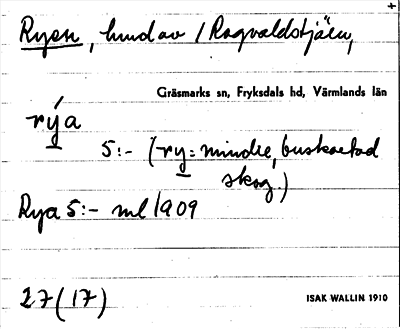 Ryen, hmd av / Ragvaldstjärn,
Gräsmarks sn, Fryksdals hd, Värmlands län
rýa
5:- (ry = mindre, buskartad
skog.)
Rya 5:- ml 1909
27(17)
ISAK WALLIN 1910